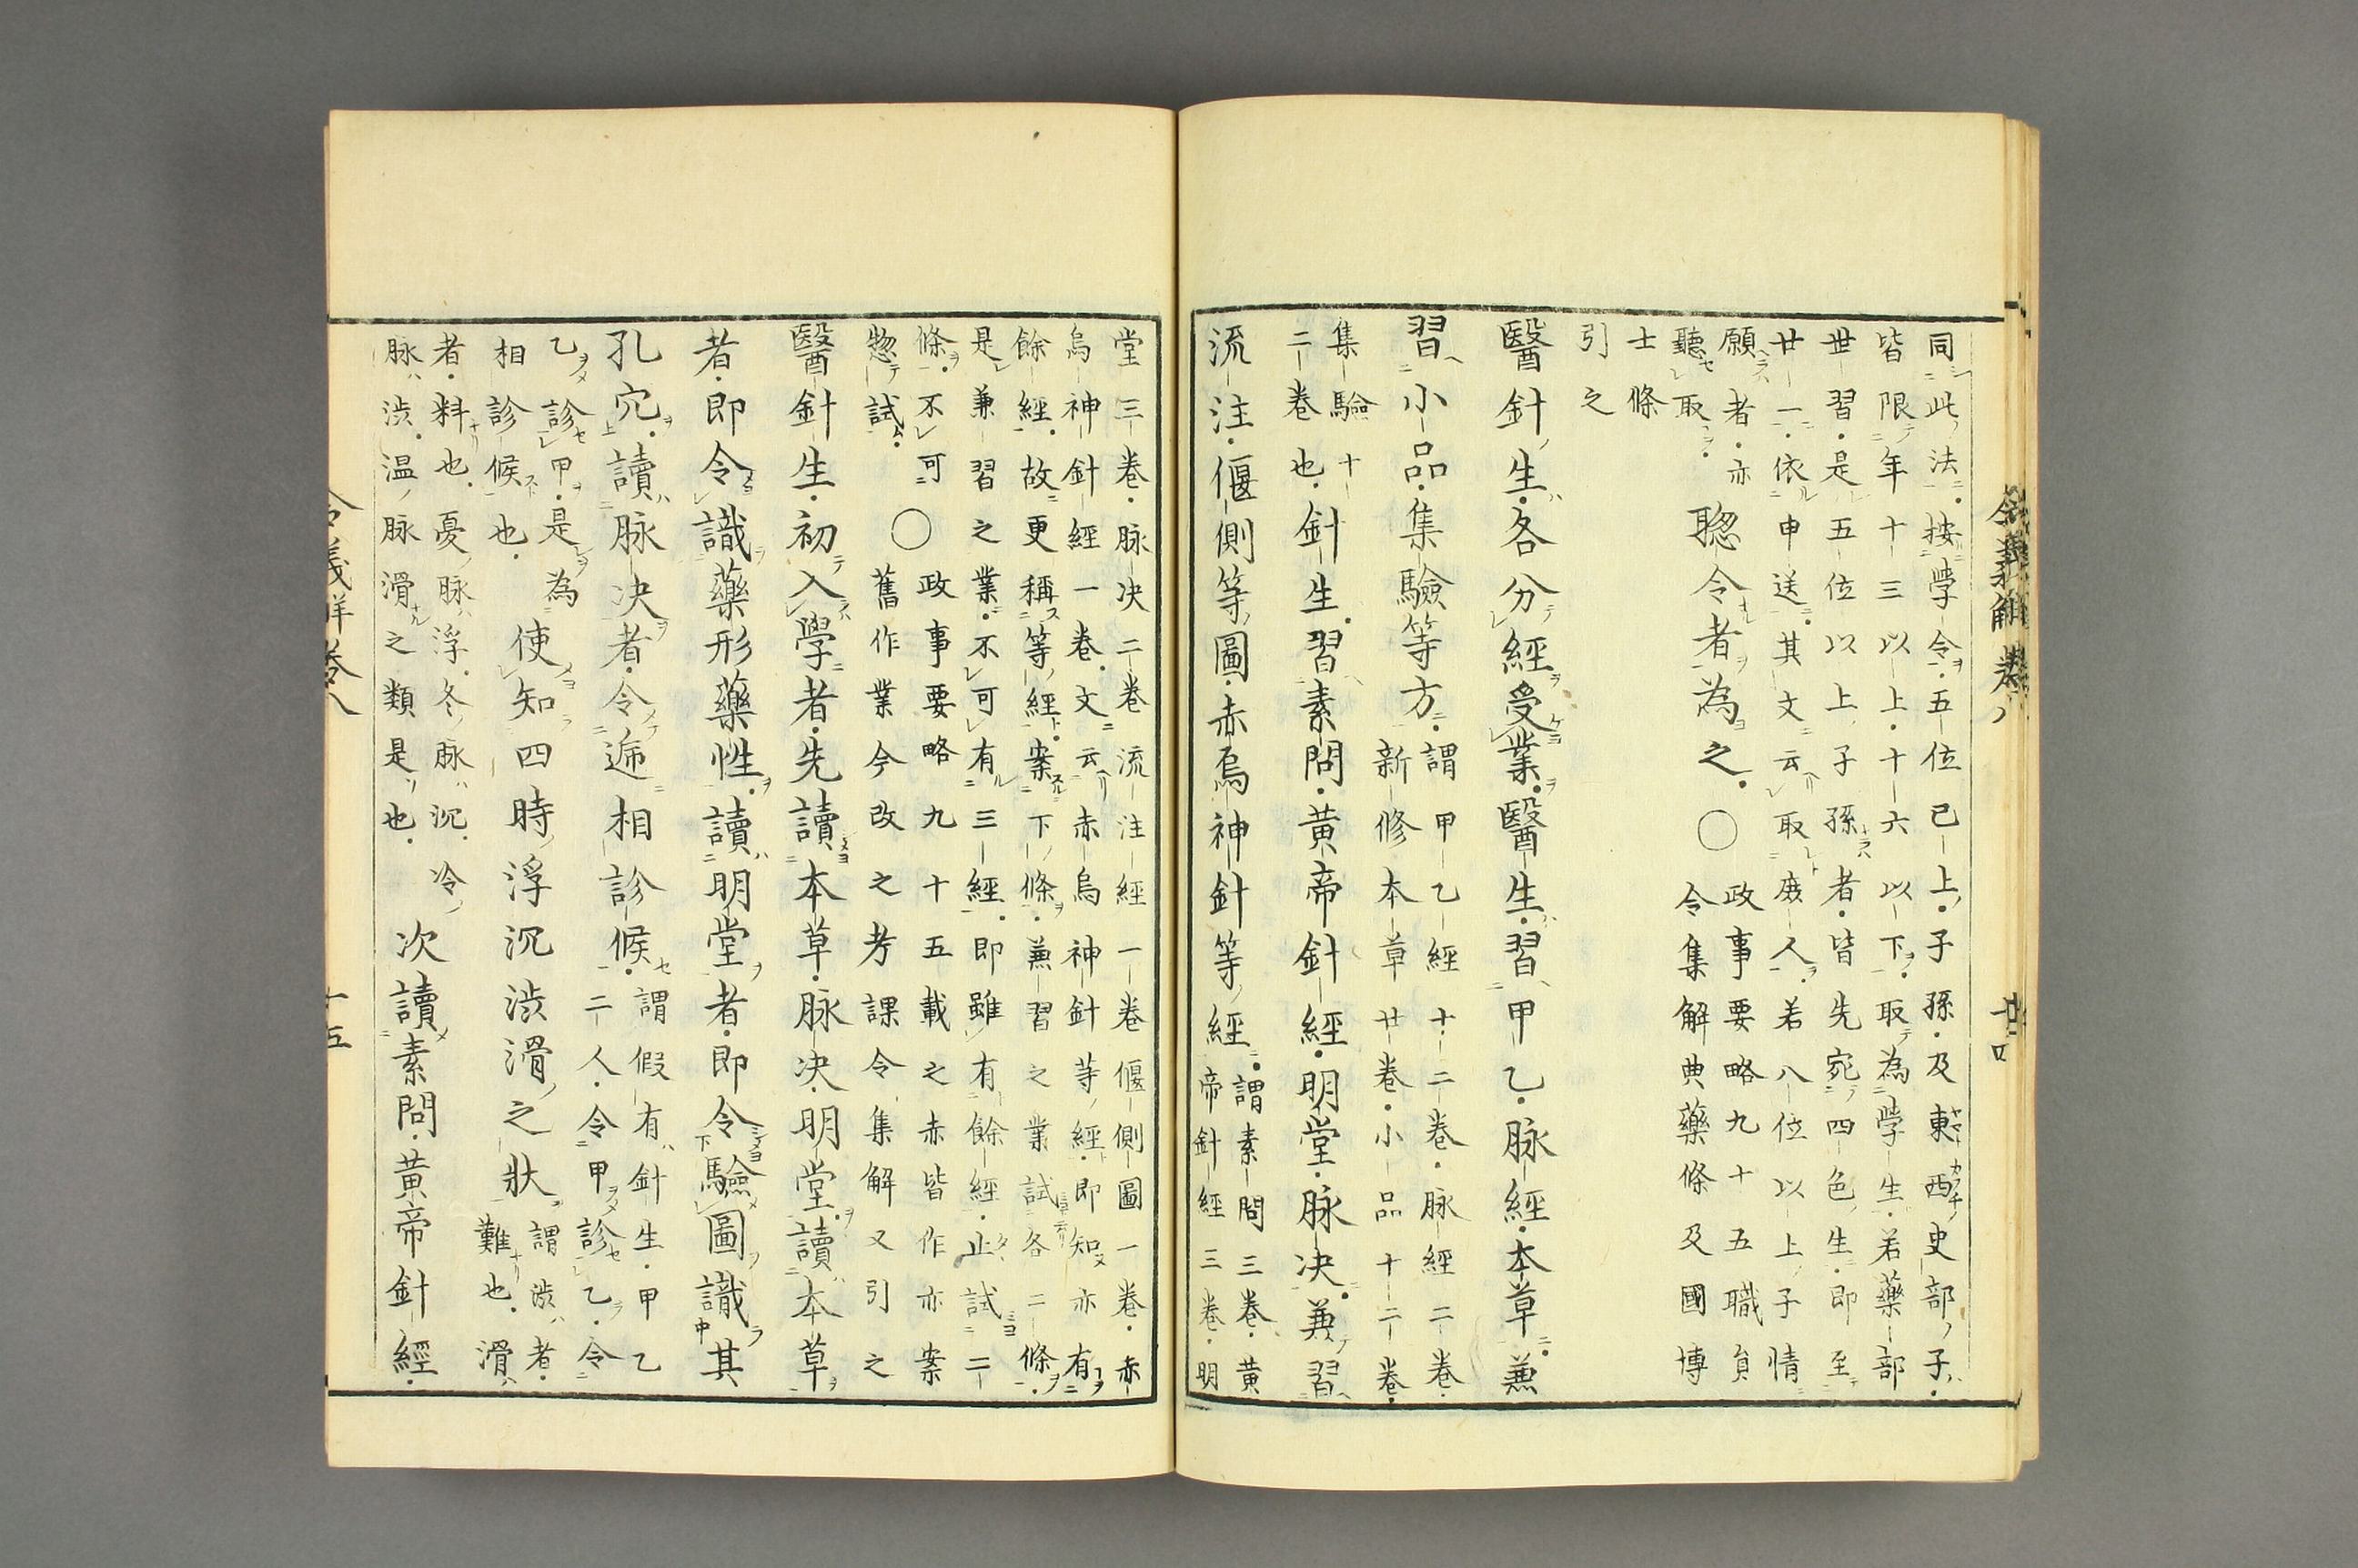 同此法按學令五位已上子孫及東西史部子
皆限年十三以上十六以下取為學生若藥部
世習是五位以上子孫者皆先宛四色生即至
廿一依申送其文云取庶人若八位以上子情
願者亦
聽取
聡令者為之○
政事要略九十五職負
令集解典藥條及國博
士條
引之
醫針生各分經受業醫生習甲乙脉經本草兼
習小品集驗等方
謂甲乙經十二卷脉經二卷
新修本草廿卷小品十二卷
集驗十
二卷也
針生習素問黄帝針經明堂脉决兼習
流注偃側等圖赤烏神針等經
謂素問三卷黄
帝針經三卷明
堂三卷脉决二卷流注經一卷偃側圖一卷赤
烏神針經一卷文云赤烏神針等經即知亦有
餘經故更稱等經案下條兼習之業試各二條
是兼習之業不可有三經即雖有餘經止試二
條不可
惣試
○
政事要略九十五載之赤皆作亦案
舊作業今改之考課令集解又引之
醫針生初入學者先讀本草脉决明堂讀本草
者即令識藥形藥性讀明堂者即令驗圖識其
孔穴讀脉决者令遞相診候
謂假有針生甲乙
二人令甲診乙令
乙診甲是為
相診候也
使知四時浮沉渋滑之狀
謂渋者
難也滑
者料也憂脉浮冬脉沉冷
脉渋温脉滑之類是也
次讀素問黄帝針經
令義解卷八
廿四
十五